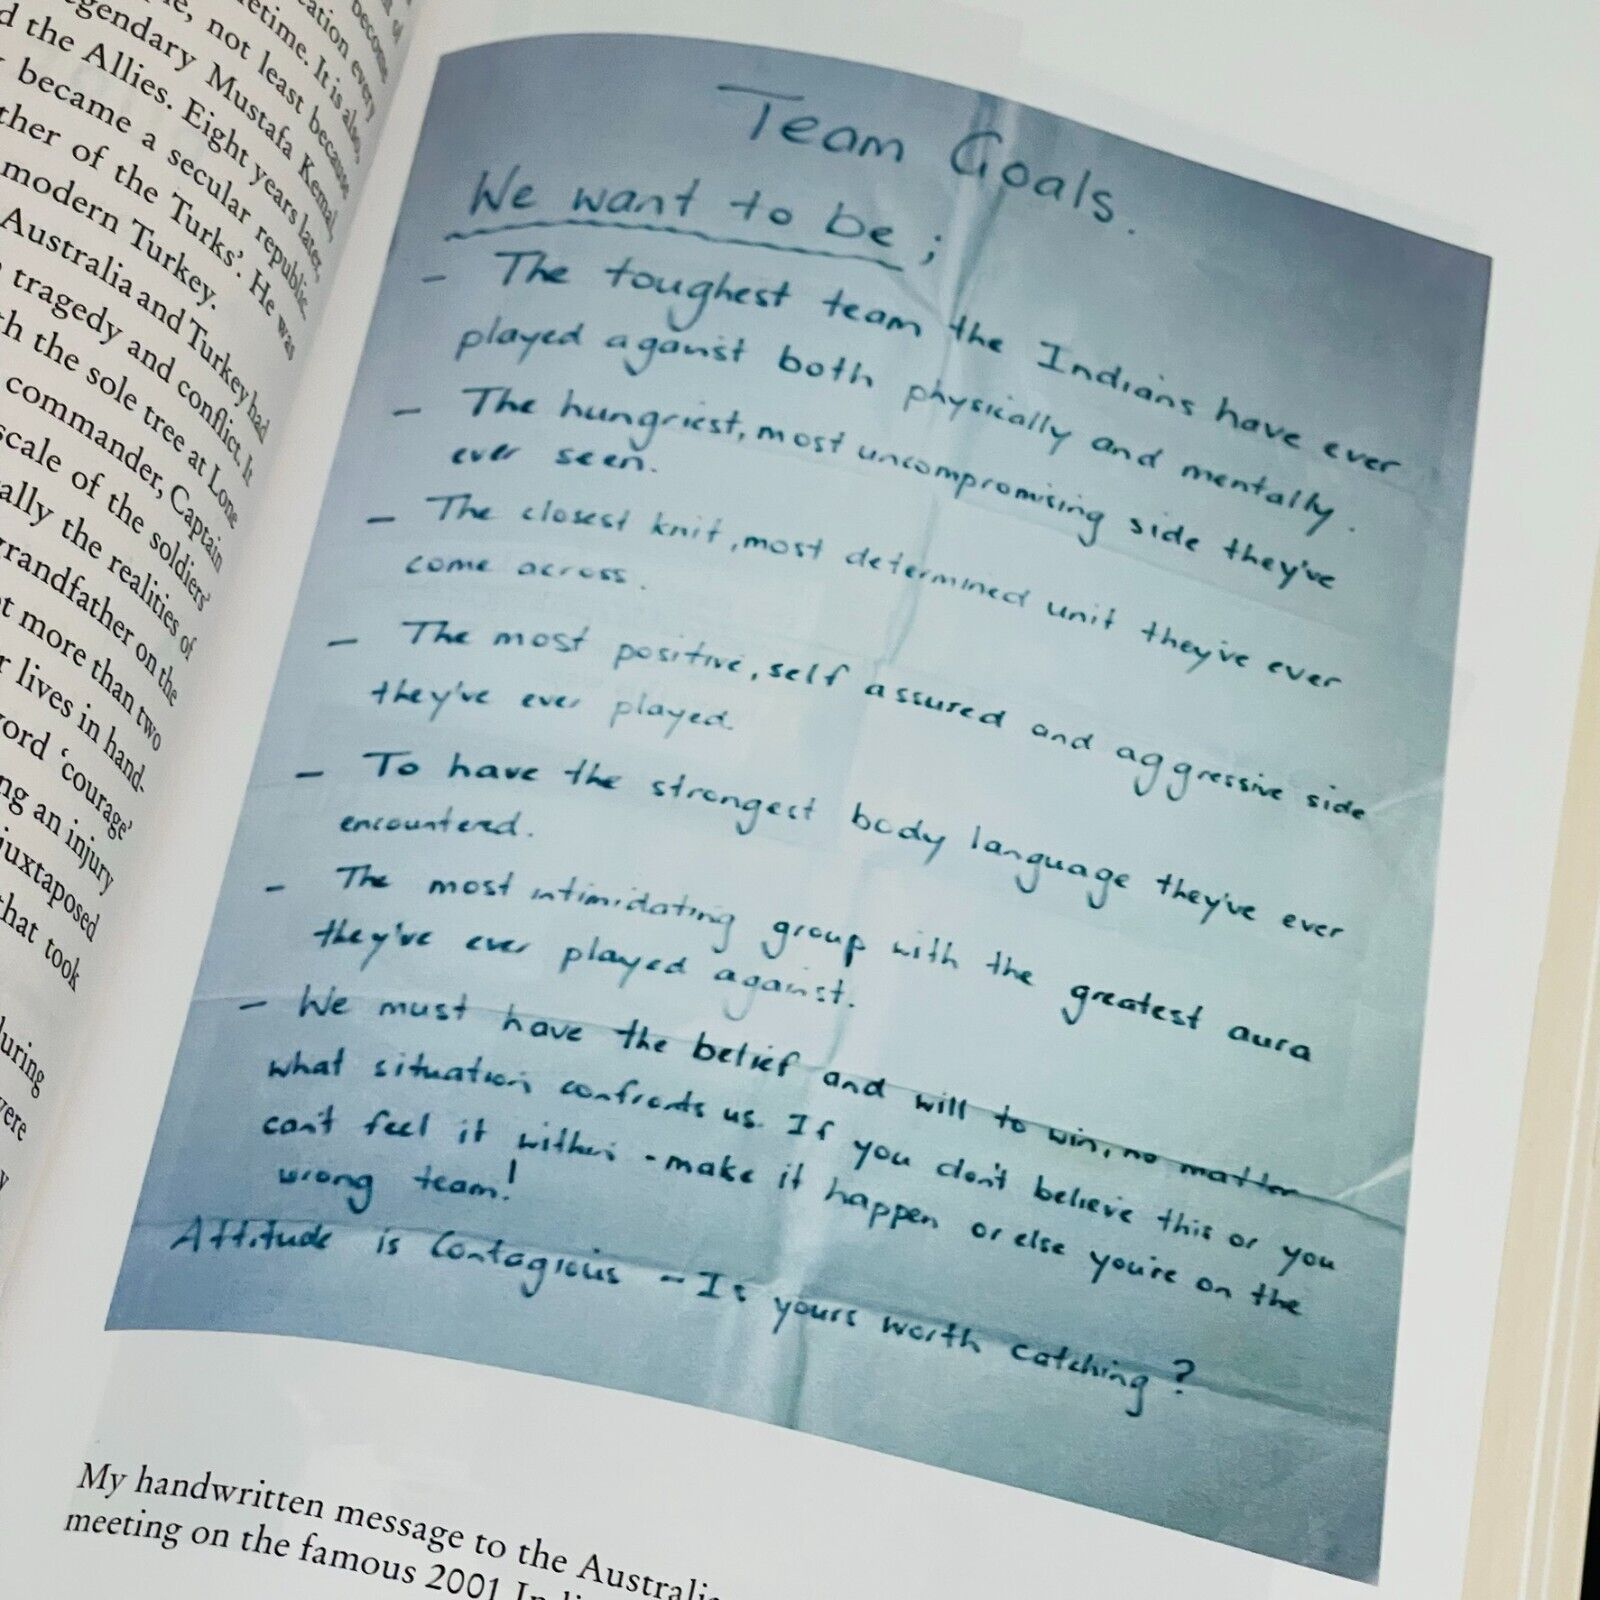 cation every
become
etime. It is also,
, not least because
egendary Mustafa Kemal,
d the Allies. Eight years later,
became a secular republic,
ther of the Turks'. He was
modern Turkey.
Australia and Turkey had
tragedy and conflict. It
th the sole tree at Lone
commander, Captain
scale of the soldiers'
ally the realities of
grandfather on the
t more than two
r lives in hand-
ord 'courage'
ng an injury
juxtaposed
that took
during
were
y
Team Goals.
We want to be;
- The toughest team the Indians have ever
played against both physically and mentally.
- The hungriest, most uncompromising side they've
ever seen.
- The closest knit, most determined unit they've ever
come across.
- The most positive, self assured and aggressive side
they've ever played.
- To have the strongest body language they've ever
encountered.
- The most intimidating group with the greatest aura
they've ever played against.
- We must have the belief and will to win, no matter
what situation confronts us. If you don't believe this or you
can't feel it within - make it happen or else you're on the
wrong team!
Attitude is Contagious - Is yours worth catching?
My handwritten message to the Australia
meeting on the famous 2001 Indi